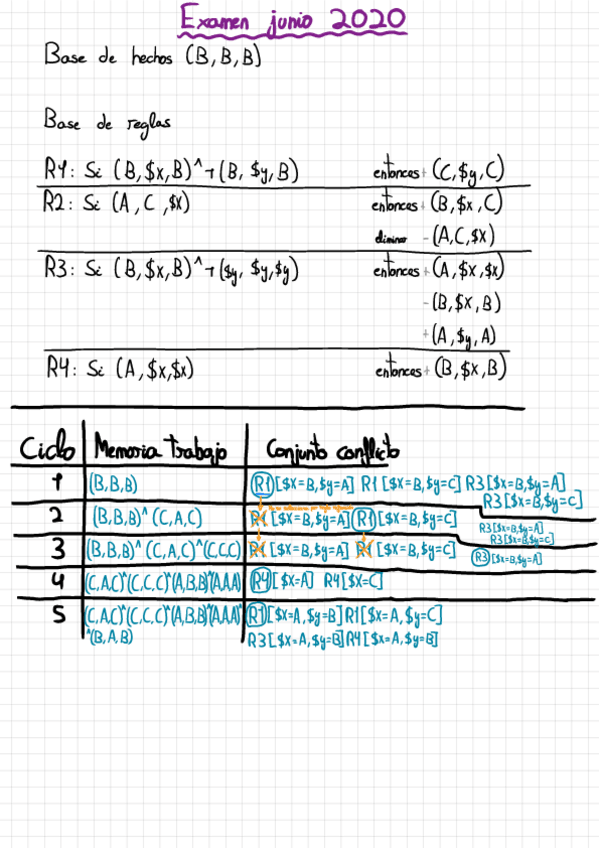 Examen junio 2020
Base de hechos (B, B, B)
Base de reglas
R1: Si (B, $x, B) ^ ¬ (B, $y, B) entonces + (C, $y, C)
R2: Si (A, C, $x) entonces + (B, $x, C)
eliminar - (A, C, $x)
R3: Si (B, $x, B) ^ ¬ ($y, $y, $y) entonces + (A, $x, $x)
- (B, $x, B)
+ (A, $y, A)
R4: Si (A, $x, $x) entonces + (B, $x, B)
Ciclo Memoria Trabajo Conjunto conflicto
1 (B, B, B) R1 [$x=B, $y=A] R1 [$x=B, $y=C] R3 [$x=B, $y=A]
R3 [$x=B, $y=C]
2 (B, B, B) ^ (C, A, C) R1 [$x=B, $y=A] R1 [$x=B, $y=C] R3 [$x=B, $y=A]
R3 [$x=B, $y=C]
3 (B, B, B) ^ (C, A, C) ^ (C, C, C) R1 [$x=B, $y=A] R1 [$x=B, $y=C] R3 [$x=B, $y=A]
4 (C, A, C) ^ (C, C, C) ^ (A, B, B) ^ (A, A, A) R4 [$x=A] R4 [$x=C]
5 (C, A, C) ^ (C, C, C) ^ (A, B, B) ^ (A, A, A) ^ R1 [$x=A, $y=B] R1 [$x=A, $y=C]
^ (B, A, B) R3 [$x=A, $y=B] R4 [$x=A, $y=B]